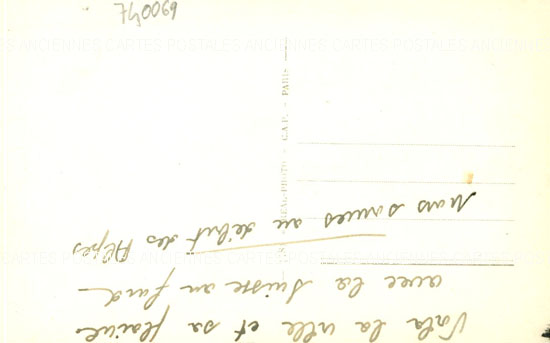 Voila la ville et sa plaine
avec la Suisse au fond
Nous sommes au début des Alpes
740069
REAL-PHOTO - C.A.P. - PARIS
CARTES POSTALES ANCIENNES CARTES POSTALES ANCIENNES CARTES POSTALES ANCIENNES